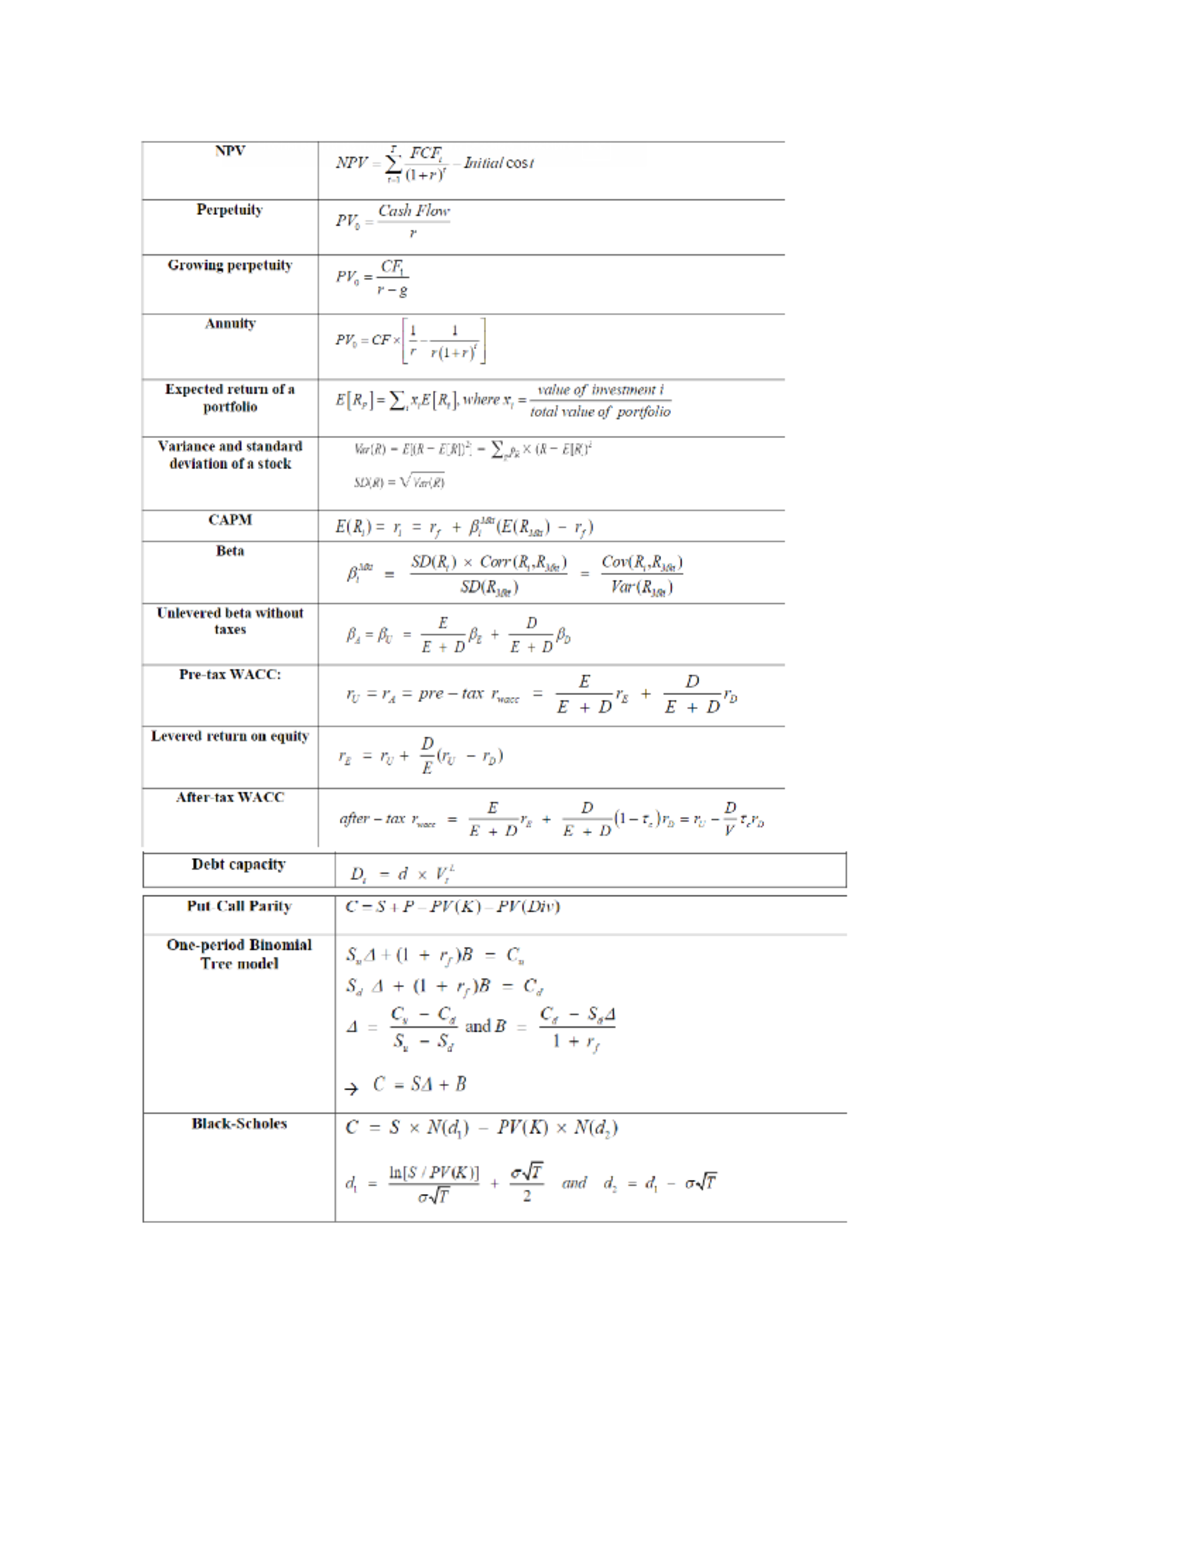 NPV
NPV = \sum_{t=1}^{T} \frac{FCF_t}{(1+r)^t} – Initial cost
Perpetuity
PV_0 = \frac{Cash Flow}{r}
Growing perpetuity
PV_0 = \frac{CF_1}{r – g}
Annuity
PV_0 = CF × [\frac{1}{r} – \frac{1}{r(1+r)^t}]
Expected return of a
portfolio
E[R_P] = \sum_i x_i E[R_i], where x_i = \frac{value of investment i}{total value of portfolio}
Variance and standard
deviation of a stock
Var(R) = E[(R – E[R])^2] = \sum_R p_R × (R – E[R])^2
SD(R) = \sqrt{Var(R)}
CAPM
E(R_i) = r_i = r_f + β_i^{Mkt}(E(R_{Mkt}) – r_f)
Beta
β_i^{Mkt} = \frac{SD(R_i) × Corr(R_i,R_{Mkt})}{SD(R_{Mkt})} = \frac{Cov(R_i,R_{Mkt})}{Var(R_{Mkt})}
Unlevered beta without
taxes
β_A = β_U = \frac{E}{E + D}β_E + \frac{D}{E + D}β_D
Pre-tax WACC:
r_U = r_A = pre – tax r_{wacc} = \frac{E}{E + D}r_E + \frac{D}{E + D}r_D
Levered return on equity
r_E = r_U + \frac{D}{E}(r_U – r_D)
After-tax WACC
after – tax r_{wacc} = \frac{E}{E + D}r_E + \frac{D}{E + D}(1 – τ_c)r_D = r_U – \frac{D}{V}τ_c r_D
Debt capacity
D_t = d × V_t^L
Put-Call Parity
C = S + P – PV(K) – PV(Div)
One-period Binomial
Tree model
S_u Δ + (1 + r_f)B = C_u
S_d Δ + (1 + r_f)B = C_d
Δ = \frac{C_u – C_d}{S_u – S_d} and B = \frac{C_d – S_d Δ}{1 + r_f}
→ C = SΔ + B
Black-Scholes
C = S × N(d_1) – PV(K) × N(d_2)
d_1 = \frac{ln[S / PV(K)]}{σ\sqrt{T}} + \frac{σ\sqrt{T}}{2} and d_2 = d_1 – σ\sqrt{T}